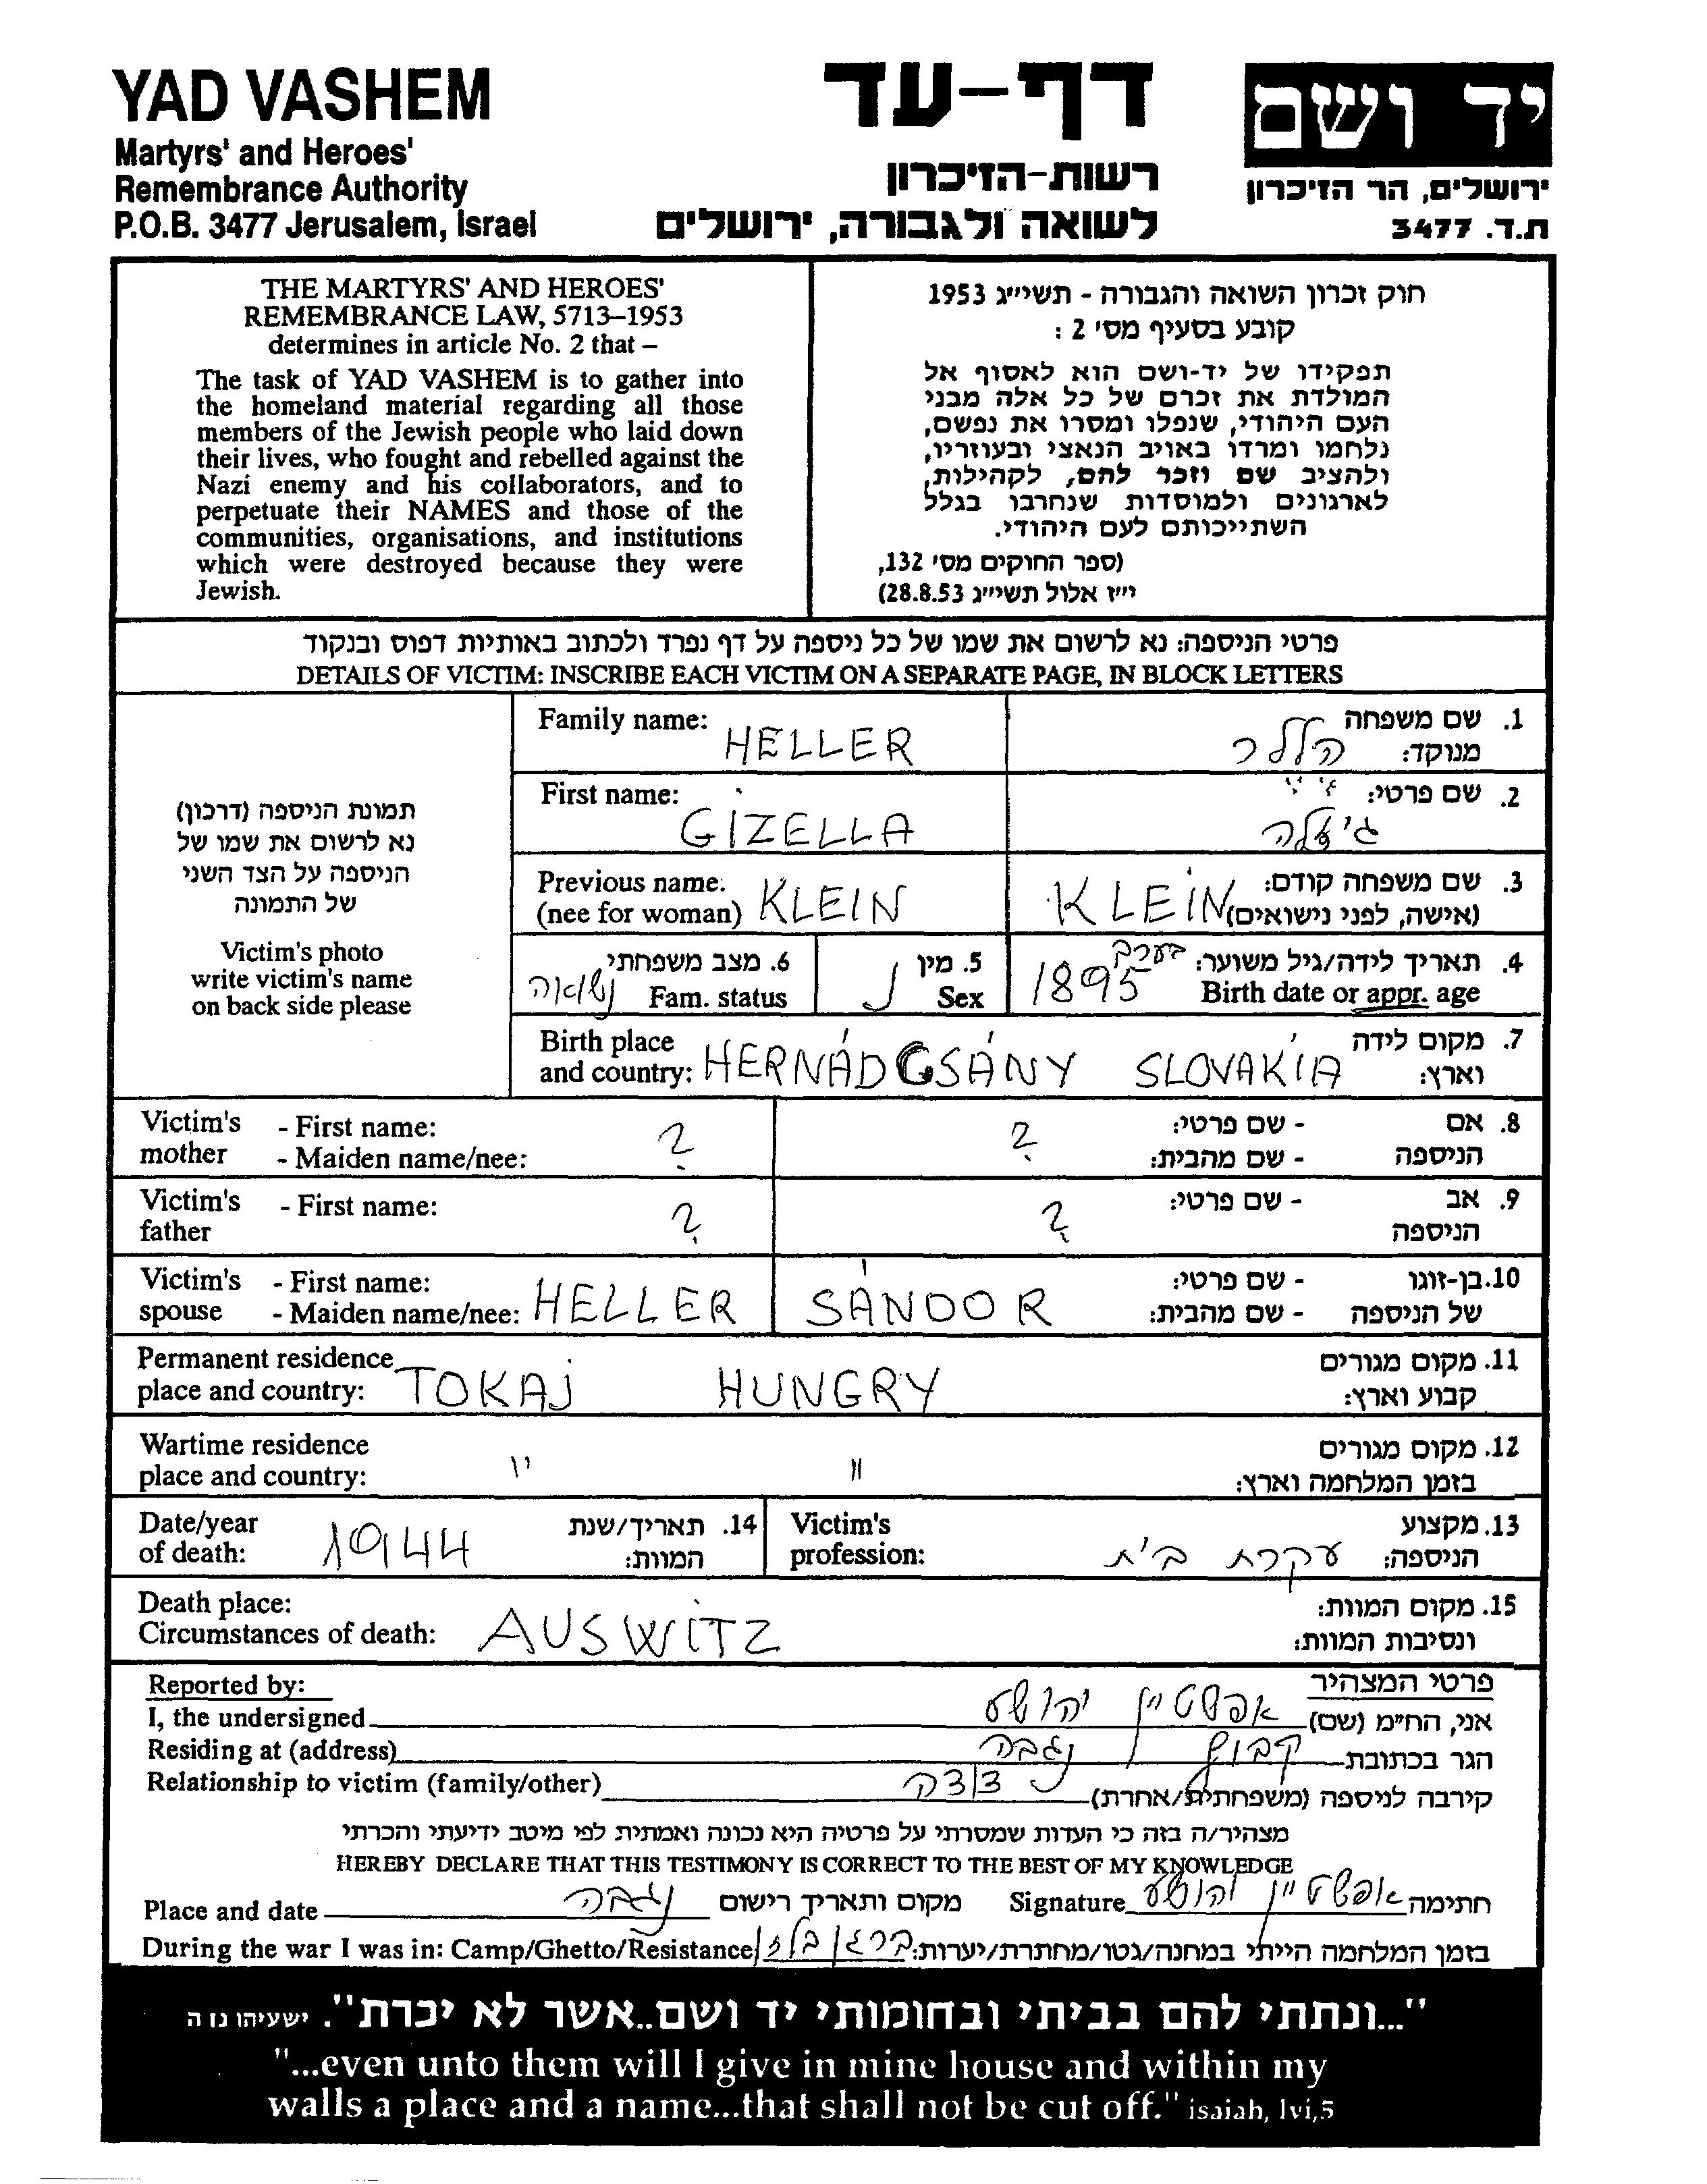 YAD VASHEM
Martyrs' and Heroes'
Remembrance Authority
P.O.B. 3477 Jerusalem, Israel
דף-עד
רשות-הזיכרון
לשואה ולגבורה, ירושלים
יד ושם
ירושלים, הר הזיכרון
ת.ד. 3477
THE MARTYRS' AND HEROES'
REMEMBRANCE LAW, 5713–1953
determines in article No. 2 that –
The task of YAD VASHEM is to gather into
the homeland material regarding all those
members of the Jewish people who laid down
their lives, who fought and rebelled against the
Nazi enemy and his collaborators, and to
perpetuate their NAMES and those of the
communities, organisations, and institutions
which were destroyed because they were
Jewish.
חוק זכרון השואה והגבורה - תשי״ג 1953
קובע בסעיף מס׳ 2 :
תפקידו של יד-ושם הוא לאסוף אל
המולדת את זכרם של כל אלה מבני
העם היהודי, שנפלו ומסרו את נפשם,
נלחמו ומרדו באויב הנאצי ובעוזריו,
ולהציב שם וזכר להם, לקהילות,
לארגונים ולמוסדות שנחרבו בגלל
השתייכותם לעם היהודי.
(ספר החוקים מס׳ 132,
י״ז אלול תשי״ג 28.8.53)
פרטי הניספה: נא לרשום את שמו של כל ניספה על דף נפרד ולכתוב באותיות דפוס ובנקוד
DETAILS OF VICTIM: INSCRIBE EACH VICTIM ON A SEPARATE PAGE, IN BLOCK LETTERS
תמונת הניספה (דרכון)
נא לרשום את שמו של
הניספה על הצד השני
של התמונה
Victim's photo
write victim's name
on back side please
Family name: HELLER
1. שם משפחה
מנוקד: הללר
First name: GIZELLA
2. שם פרטי: גיזלה
Previous name:
(nee for woman) KLEIN
3. שם משפחה קודם:
(אישה, לפני נישואים) KLEIN
4. תאריך לידה/גיל משוער: בערך
Birth date or appr. age 1895
5. מין
Sex נ
6. מצב משפחתי
Fam. status נשואה
Birth place
and country: HERNÁDCSÁNY SLOVÁKIA
7. מקום לידה
וארץ:
Victim's mother - First name:
- Maiden name/nee: ?
8. אם הניספה - שם פרטי:
- שם מהבית: ?
Victim's father - First name: ?
9. אב הניספה - שם פרטי: ?
Victim's spouse - First name:
- Maiden name/nee: HELLER SÁNDOR
10. בן-זוגו של הניספה - שם פרטי:
- שם מהבית:
Permanent residence
place and country: TOKAJ HUNGRY
11. מקום מגורים
קבוע וארץ:
Wartime residence
place and country: " "
12. מקום מגורים
בזמן המלחמה וארץ:
Date/year
of death: 1944
14. תאריך/שנת
המוות:
Victim's
profession:
13. מקצוע
הניספה: עקרת בית
Death place:
Circumstances of death: AUSWITZ
15. מקום המוות:
ונסיבות המוות:
Reported by:
פרטי המצהיר
I, the undersigned
אני, הח״מ (שם) אפשטיין יהושע
Residing at (address)
הגר בכתובת קבוץ נגבה
Relationship to victim (family/other)
קירבה לניספה (משפחתית/אחרת)
מצהיר/ה בזה כי העדות שמסרתי על פרטיה היא נכונה ואמתית לפי מיטב ידיעתי והכרתי
HEREBY DECLARE THAT THIS TESTIMONY IS CORRECT TO THE BEST OF MY KNOWLEDGE
Place and date נגבה מקום ותאריך רישום Signature אפשטיין יהושע חתימה
During the war I was in: Camp/Ghetto/Resistance ברגן בלזן בזמן המלחמה הייתי במחנה/גטו/מחתרת/יערות:
"...ונתתי להם בביתי ובחומותי יד ושם..אשר לא יכרת". ישעיהו נז ה
"...even unto them will I give in mine house and within my
walls a place and a name...that shall not be cut off." isaiah, lvi,5